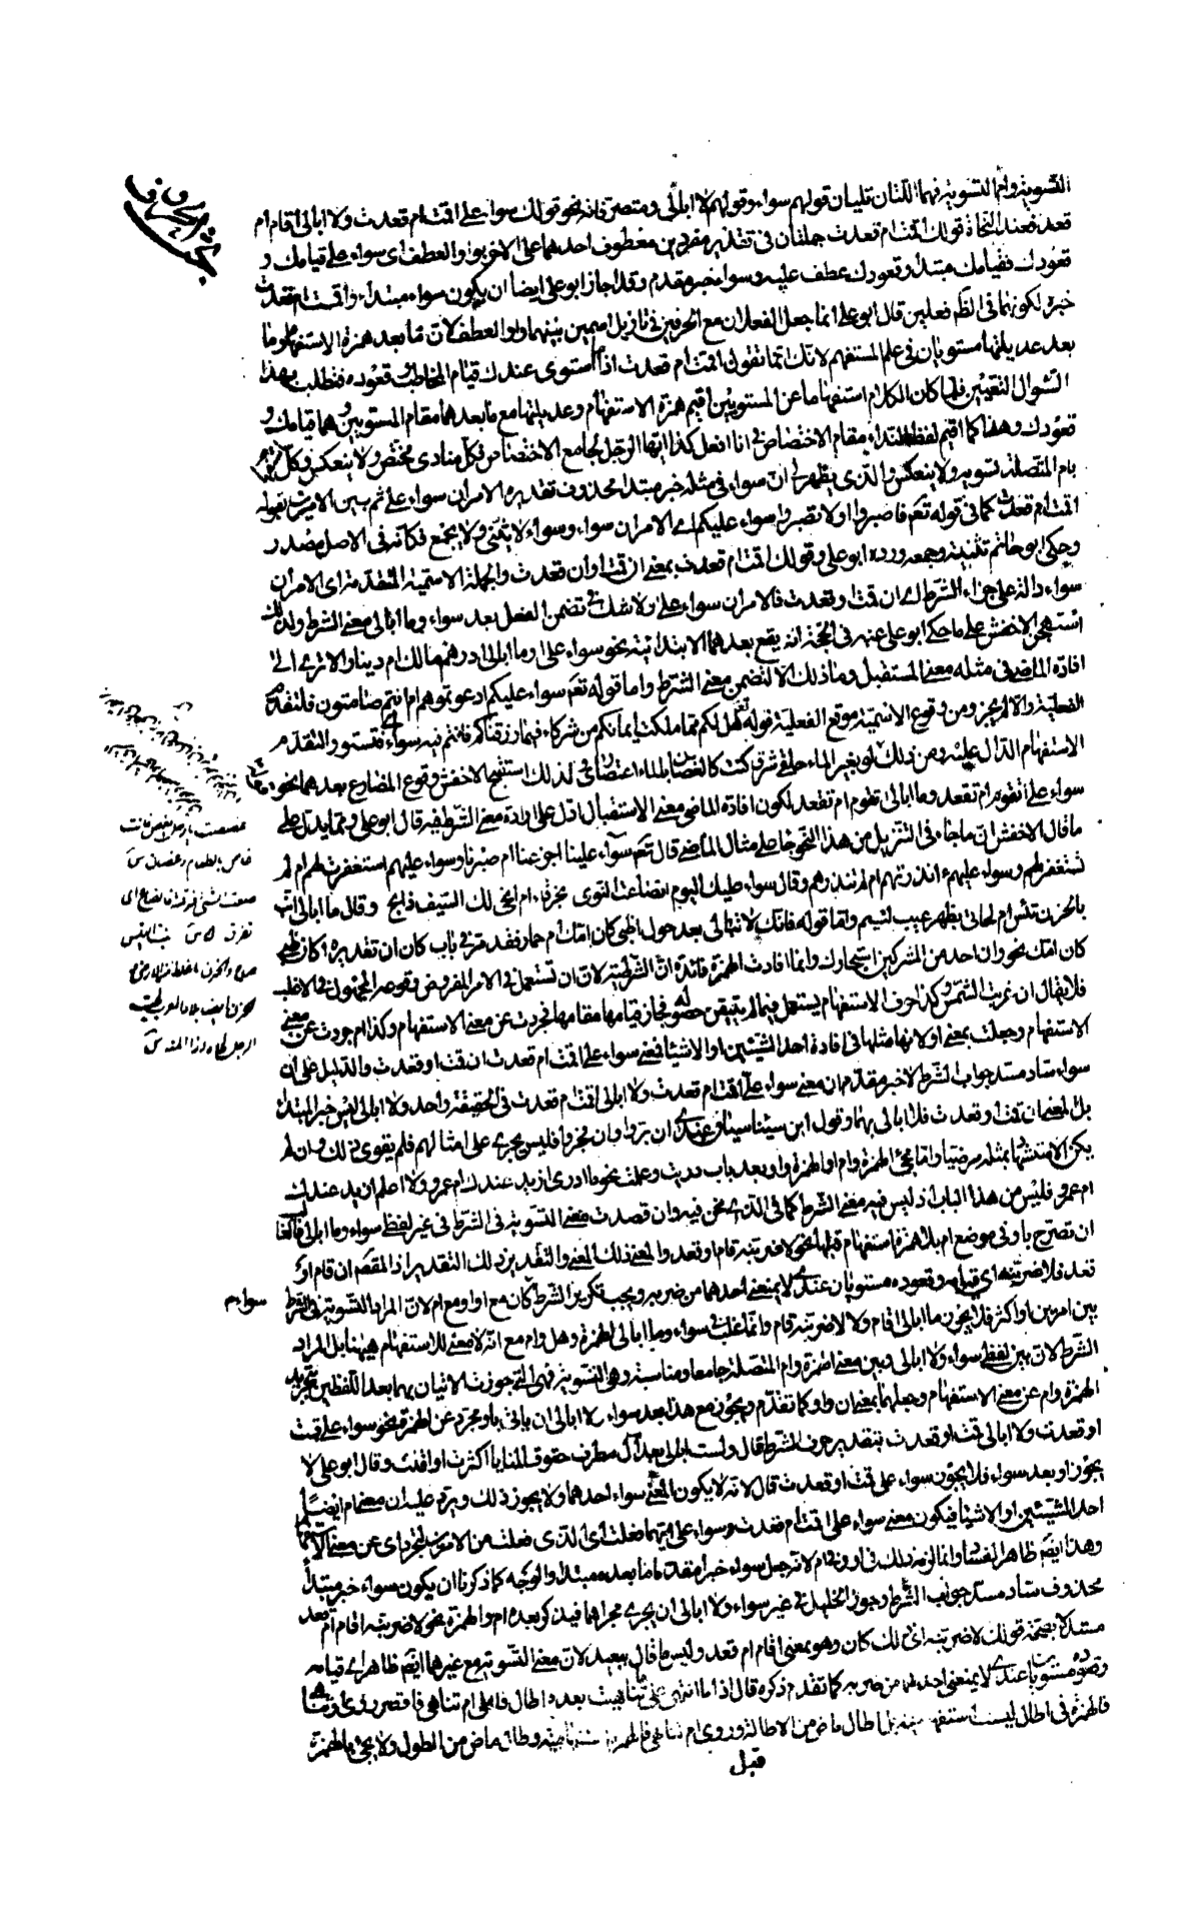 التسوية وام التسوية فهما اللتان تليان قولهم سواء وقولهم لا ابالى ومتصرفاته نحو قولك سواء على اقمت ام قعدت ولا ابالى اقام ام
قعد فعند النحاة قولك اقمت ام قعدت جملتان فى تقدير مفردين معطوف احدهما على الاخر بواو العطف اى سواء على قيامك و
قعودك فقيامك مبتدأ وقعودك عطف عليه وسواء خبر مقدم وقد اجاز ابو على ايضا ان يكون سواء مبتدأ واقمت ام قعدت
خبره لكونهما فى الظ فعلين قال ابو على انما جعل الفعلان مع الحرفين فى تاويل اسمين بينهما واو العطف لان ما بعد همزة الاستفهام وما
بعد عديلتها مستويان فى علم المستفهم لانك انما تقول اقمت ام قعدت اذا استوى عندك قيام المخاطب وقعوده فتطلب بهذا
السؤال التعيين فلما كان الكلام استفهاما عن المستويين اقيم همزة الاستفهام وعديلتها مع ما بعدهما مقام المستويين وهما قيامك و
قعودك وهذا كما اقيم لفظ النداء مقام الاختصاص فى انا افعل كذا ايها الرجل بجامع الاختصاص فكل منادى مختص ولا ينعكس وكل
بام المتصلة تسوية ولا ينعكس والذى يظهر لى ان سواء فى مثله خبر مبتدأ محذوف تقديره الامران سواء على ثم بين الامرين بقوله
اقمت ام قعدت كما فى قوله تعم فاصبروا او لا تصبروا سواء عليكم اى الامران سواء وسواء لا يثنى ولا يجمع فكانه فى الاصل مصدر
وحكى ابو حاتم تثنيته وجمعه ورده ابو على وقولك اقمت ام قعدت بمعنى ان قمت او ان قعدت والجملة الاسمية المتقدمة اى الامران
سواء دالة على جزاء الشرط اى ان قمت او قعدت فالامران سواء على ولا شك فى تضمن الفعل بعد سواء وما ابالى معنى الشرط ولذلك
استهجن الاخفش على ما حكى ابو على عنه فى الحجة ان يقع بعدهما الابتدائية نحو سواء على او ما ابالى ادرهم مالك ام دينار الا ترى الى
افادة الماضى فى مثله معنى المستقبل وما ذلك الا لتضمن معنى الشرط واما قوله تعم سواء عليكم ادعوتموهم ام انتم صامتون فلتقدم
الفعلية والا لم يجز ومن وقوع الاسمية موقع الفعلية قوله تعم هل لكم مما ملكت ايمانكم من شركاء فيما رزقناكم فانتم فيه سواء اى فتستووا لتقدم
الاستفهام الدال عليه ومن ذلك لو بغير الماء حلقى شرق كنت كالغصان بالماء اعتصارى لذلك استقبح الاخفش وقوع المضارع بعدهما نحو
سواء على اتقوم ام تقعد وما ابالى تقوم ام تقعد لكون افادة الماضى معنى الاستقبال ادل على ارادة معنى الشرط فيه قال ابو على ومما يدل على
ما قال الاخفش ان ما جاء فى التنزيل من هذا النحو جاء على مثال الماضى قال تعم سواء علينا اجزعنا ام صبرنا وسواء عليهم استغفرت لهم ام لم
تستغفر لهم وسواء عليهم ءانذرتهم ام لم تنذرهم وقال سواء عليك اليوم انصاعت النوى بخرقاء ام انحى لك السيف ذابح وقال ما ابالى انب
بالحزن تيس ام لحانى بظهر غيب لئيم واما قوله فانك لا تبالى بعد حول اظبى كان امك ام حمار فقد مر فى باب كان ان تقديره اكان ظبى
كان امك نحو وان احد من المشركين استجارك وانما افادت الهمزة فائدة ان الشرطية لان ان تستعمل فى الامر المفروض وقوعه المجهول فى الاغلب
فلا يقال ان غربت الشمس وكذا حرف الاستفهام يستعمل فيما لم يتيقن حصوله فجاز قيامها مقامها فجردت عن معنى الاستفهام وكذا ام جردت عن معنى
الاستفهام وجعلت بمعنى او لانها مثلها فى افادة احد الشيئين او الاشياء فمعنى سواء على اقمت ام قعدت ان قمت او قعدت والدليل على ان
سواء ساد مسد جواب الشرط لا خبر مقدم ان معنى سواء على اقمت ام قعدت ولا ابالى اقمت ام قعدت فى الحقيقة واحد ولا ابالى ليس خبر المبتدأ
بل المعنى ان قمت او قعدت فلا ابالى بهما وقول ابن سينا
يكن الا مستشهدا بمثله مرضيا واما مجئ الهمزة وام او الهمزة واو بعد باب دريت وعلمت نحو ما ادرى ازيد عندك ام عمرو ولا اعلم ازيد عندك
ام عمرو فليس من هذا الباب اذ ليس فيه معنى الشرط كما فى الذى نحن فيه وان قصدت معنى التسوية فى الشرط فى غير لفظ سواء وما ابالى فالغالب
ان تصرح باو فى موضع ام بلا همزة استفهام قبلها نحو لاضربنه قام او قعد والمعنى ذلك المعنى والتقدير ذلك التقدير اذ المقصم ان قام او
قعد فلاضربنه اى قيامه وقعوده مستويان عندى لا يمنعنى احدهما من ضربه ويجب تكرير الشرط كان مع او او مع ام لان المراد التسوية فى الشرط
سواء م
بين امرين او اكثر فلا يجوز ما ابالى قام ولا لاضربنه قام وانما غلب فى سواء وما ابالى الهمزة وهل وام مع انه لا معنى للاستفهام ههنا بل المراد
الشرط لان بين لفظى سواء ولا ابالى وبين معنى الهمزة وام المتصلة جامعا ومناسبة وهى التسوية فهى التى جوزت الاتيان بهما بعد اللفظين بتجريد
الهمزة وام عن معنى الاستفهام وجعلهما بمعنى ان واو كما تقدم ويجوز مع هذا بعد سواء ولا ابالى ان ياتى باو مجردا عن الهمزة نحو سواء على قمت
او قعدت ولا ابالى قمت او قعدت بتقدير حرف الشرط قال ولست ابالى بعد آل مطرف حتوف المنايا اكثرت او اقلت وقال ابو على لا
يجوز او بعد سواء فلا يجوز سواء على قمت او قعدت قال لانه لا يكون المعنى سواء احدهما ولا يجوز ذلك ويرد عليه ان معنى ام ايضا
احد الشيئين او الاشياء فيكون معنى سواء على اقمت ام قعدت وسواء على ايهما فعلت اى الذى فعلت من الامرين لتجرد اى عن معنى الاستفهام
وهذا ايضم ظاهر الفساد وانما لزمه ذلك فى او وفى ام لانه جعل سواء خبرا مقدما ما بعده مبتدأ والوجه كما ذكرنا ان يكون سواء خبر مبتدأ
محذوف ساد مسد جواب الشرط وجوز الخليل فى غير سواء ولا ابالى ان يجرى مجراهما فيذكر بعده ام والهمزة نحو لاضربنه اقام ام قعد
مستدلا بصحة قولك لاضربنه اى ذلك كان وهو بمعنى اقام ام قعد وليس ما قال ببعيد لان معنى التسوية مع غيرهما ايضم ظاهر اى قيامه
وقعوده مستويان عندى لا يمنعنى احدهما من ضربه كما تقدم ذكره قال اذا ما انتهى علمى تناهيت بعده اطال فاملى ام تناهى فاقصر وروى
فالهمزة فى اطال ليست استفهامية بل اطال ماض من الاطالة وروى ام تناهى فالهمزة وطال ماض من الطول ولا يجئ بالهمزة
قبل